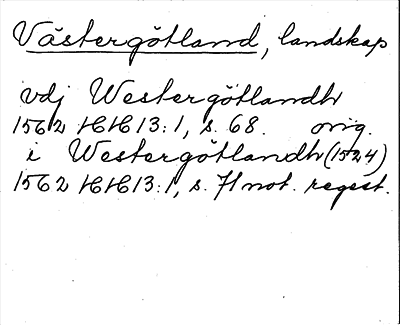 Västergötland, landskap
vdj Westergötlandh
1562 HH 13:1, s. 68. orig.
i Westergötlandh (1524)
1562 HH 13:1, s. 71 not. regest.